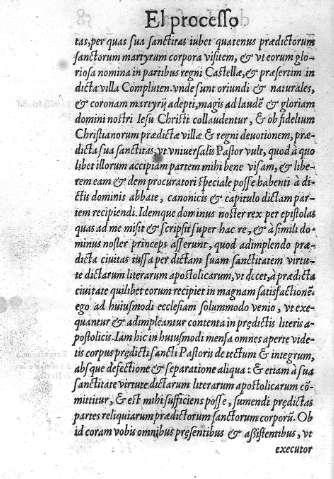 El processo
tas, per quas sua sanctitas iubet quatenus prædictorum
sanctorum martyrum corpora visitem, & vt eorum glo-
riosa nomina in partibus regni Castellæ, & præsertim in
dicta villa Compluten. vnde sunt oriundi & naturales,
& coronam martyrij adepti, magis ad laudẽ & gloriam
domini nostri Iesu Christi collaudentur, & ob fidelium
Christianorum prædictæ villæ & regni deuotionem, præ-
dicta sua sanctitas, vt vniuersalis Pastor vult, quod à quo
libet illorum accipiam partem mihi bene visam, & libe-
rem eam & dem procuratori speciale posse habenti à di-
ctis dominis abbate, canonicis & capitulo dictam par-
tem recipiendi. Idemque dominus noster rex per epistolas
quas ad me misit & scripsit super hac re, & à simili do-
minus noster princeps asserunt, quod adimplendo præ-
dicta ciuitas iussa per dictam suam sanctitatem virtu-
te dictarum literarum apostolicarum, vt decet, à prædicta
ciuitate quilibet eorum recipiet in magnam satisfactionẽ
ego ad huiusmodi ecclesiam solummodo venio, vt exe-
quantur & adimpleantur contenta in prędictis literis a-
postolicis. Iam hic in huiusmodi mensa omnes aperte vide-
tis corpus prędicti sancti Pastoris detectum & integrum,
absque defectione & separatione aliqua: & etiam à sua
sanctitate virtute dictarum literarum apostolicarum cõ-
mittitur, & est mihi sufficiens posse, sumendi prędictas
partes reliquiarum prædictorum sanctorum corporũ. Ob
id coram vobis omnibus pręsentibus & assistentibus, vt
executor